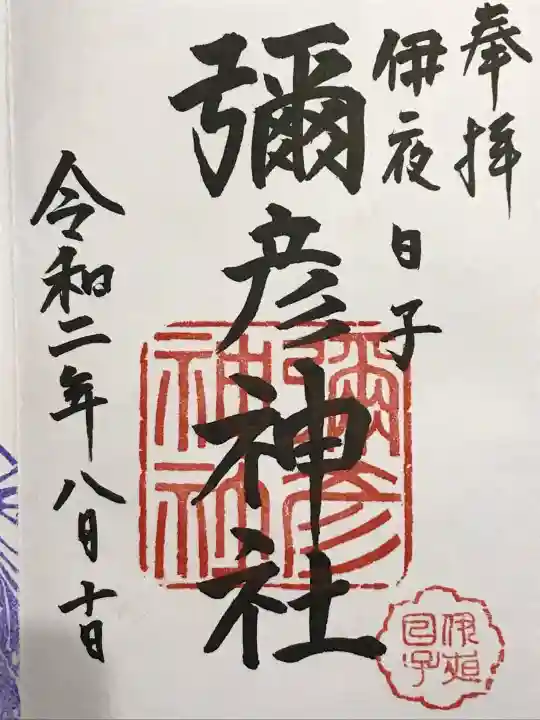 奉拝
伊夜日子
彌彦神社
令和二年八月十日
彌彦
神社
伊夜
日子